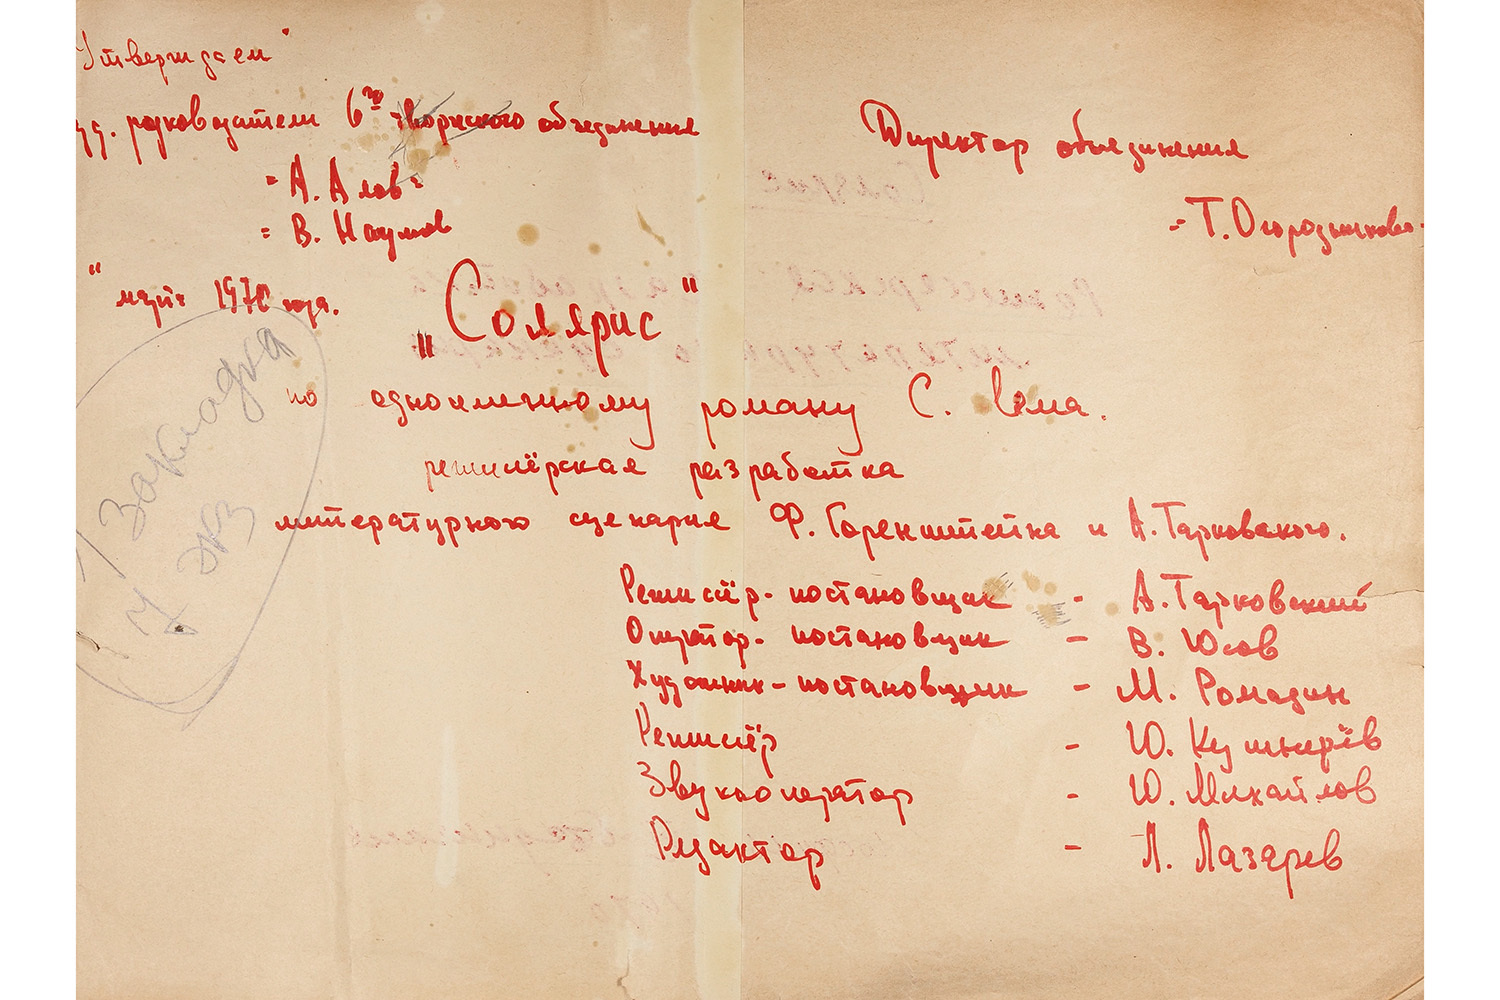 Утверждаем"
худ. руководители 6го творческого объединения
"А. Алов"
= В. Наумов
Директор объединения
- Т. Огородникова.
"март 1970 года.
„Солярис"
по одноименному роману С. Лема.
режиссёрская разработка
литературного сценария Ф. Горенштейна и А. Тарковского.
Режиссёр-постановщик - А. Тарковский
Оператор-постановщик - В. Юсов
Художник-постановщик - М. Ромадин
Режиссёр - Ю. Кушнерёв
Звукооператор - Ю. Михайлов
Редактор - Л. Лазарев
Закладка
У экз
Солярис
Режиссерская разработка
литературного сценария